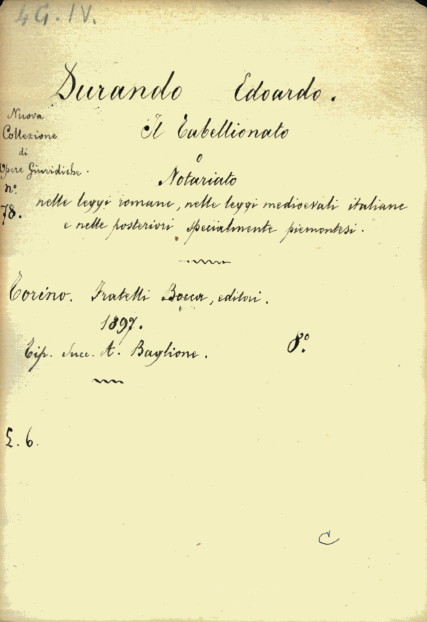 4G.IV.
Durando Edoardo.
Nuova
Collezione
di
Opere Giuridiche.
n.º
78.
Il Tabellionato
o
Notariato
nelle leggi romane, nelle leggi medioevali italiane
e nelle posteriori specialmente piemontesi.
Torino. Fratelli Bocca, editori.
1897.
Tip. Succ. A. Baglione.
8.º
L. 6.
C